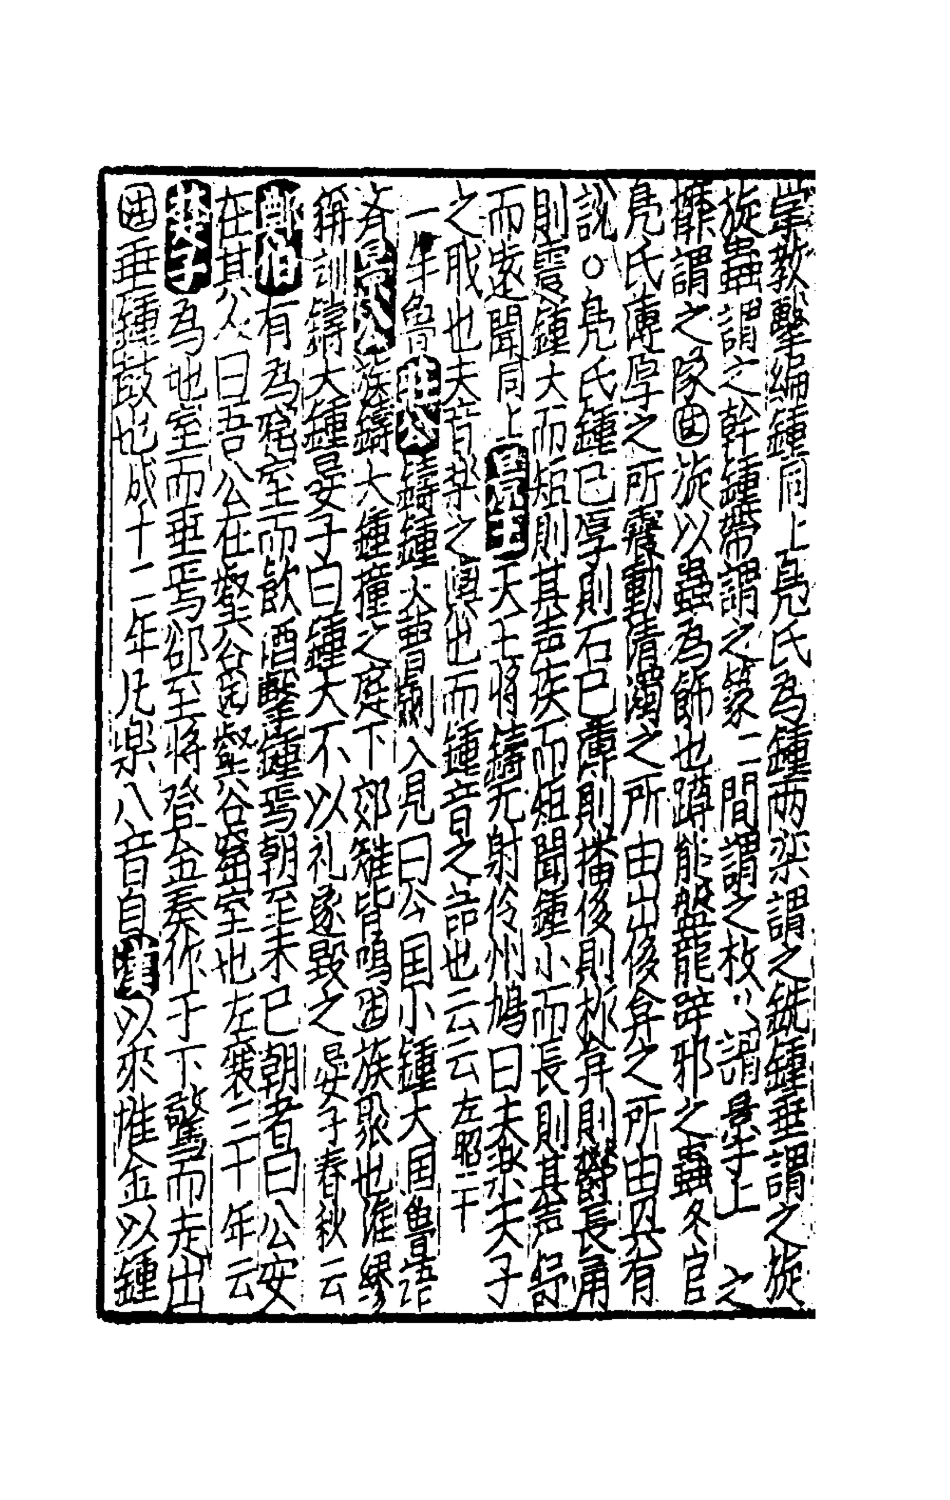 掌教擊編鍾同上鳧氏為鍾兩欒謂之銑鍾垂謂之旋
旋蟲謂之幹鍾帶謂之篆二間謂之枚〻謂景上之
攠謂之隊注旋以蟲為飾也蹲熊盤龍辟邪之蟲冬官
鳧氏薄厚之所震動清濁之所由出侈弇之所由興有
說○鳧氏鍾已厚則石已薄則播侈則柞弇則欝長甬
則震鍾大而短則其声疾而短聞鍾小而長則其声舒
而遠聞同上景王天王將鑄无射伶州鳩曰夫楽天子
之軄也夫音楽之輿也而鍾音之噐也云云左昭二十
一年魯莊公鑄鍾大曹劌入見曰今国小鍾大国魯語
斉景公族鑄大鍾撞之庭下郊雉皆鳴注族聚也淮繆
稱訓鑄大鍾晏子曰鍾大不以礼遂毀之晏子春秋云
鄭伯有為窟室而飲酒擊鍾焉朝至未已朝者曰公安
在其人曰吾公在壑谷注壑谷窟室也左襄三十年云
楚子為地室而垂焉郤至將登金奏作于下驚而走出
注垂鍾鼓也成十二年凡楽八音自漢以來惟金以鍾